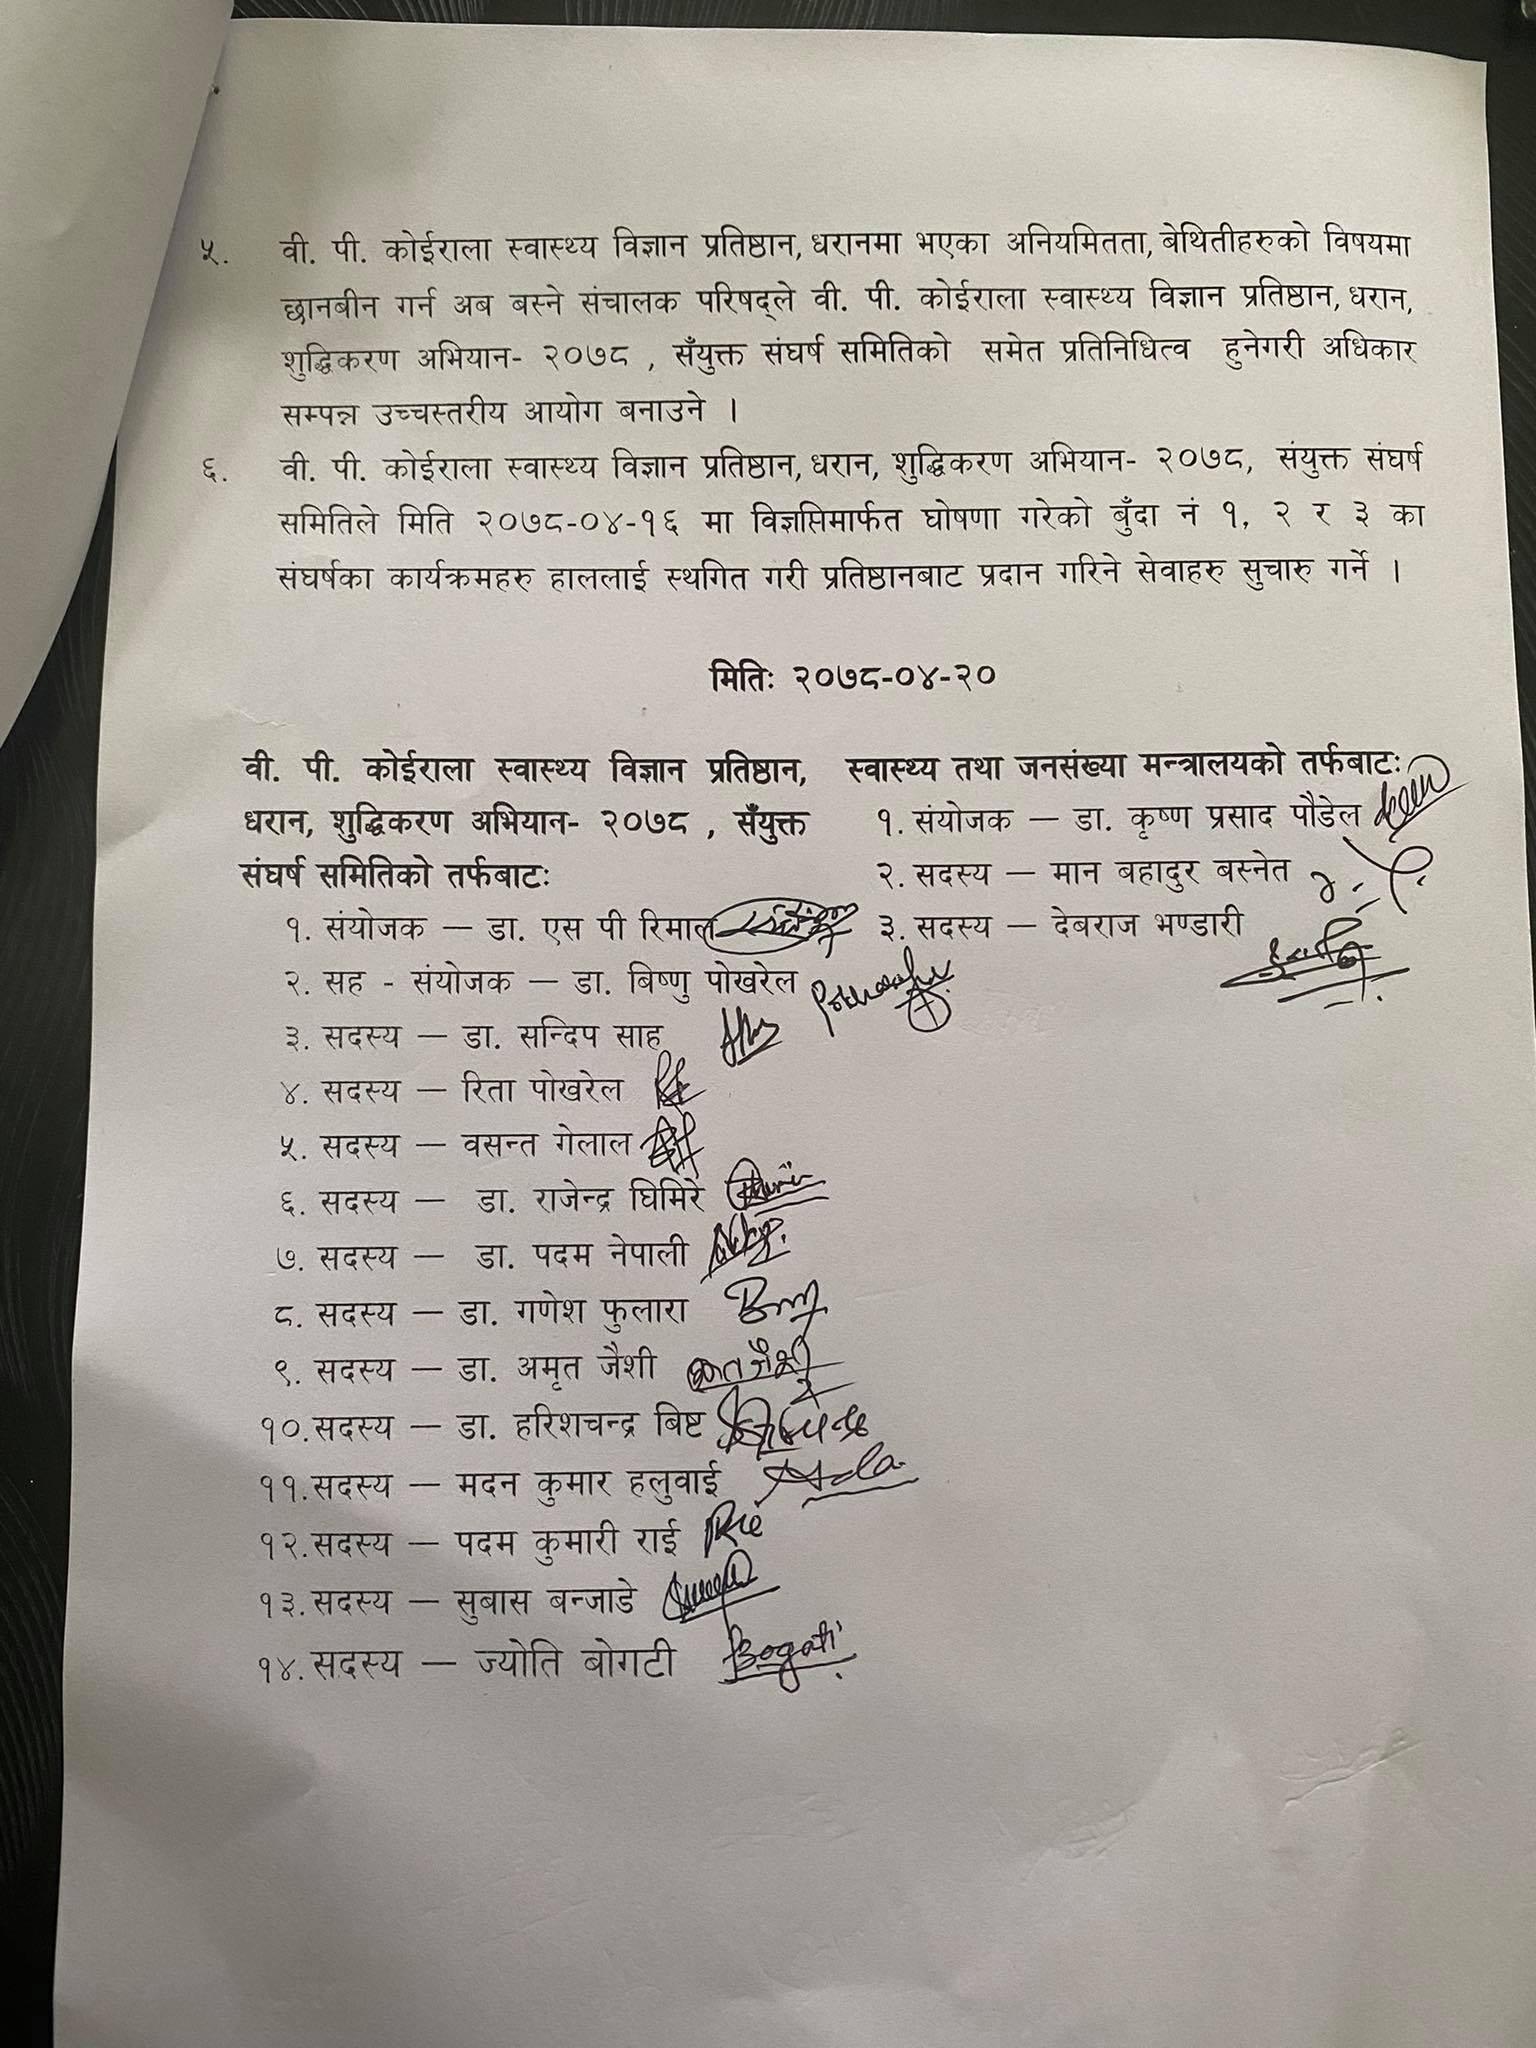 ५. वी. पी. कोईराला स्वास्थ्य विज्ञान प्रतिष्ठान, धरानमा भएका अनियमितता, बेथितीहरुको विषयमा
छानबीन गर्न अब बस्ने संचालक परिषद्ले वी. पी. कोईराला स्वास्थ्य विज्ञान प्रतिष्ठान, धरान,
शुद्धिकरण अभियान- २०७८ , सँयुक्त संघर्ष समितिको समेत प्रतिनिधित्व हुनेगरी अधिकार
सम्पन्न उच्चस्तरीय आयोग बनाउने ।
६. वी. पी. कोईराला स्वास्थ्य विज्ञान प्रतिष्ठान, धरान, शुद्धिकरण अभियान- २०७८, संयुक्त संघर्ष
समितिले मिति २०७८-०४-१६ मा विज्ञप्तिमार्फत घोषणा गरेको बुँदा नं १, २ र ३ का
संघर्षका कार्यक्रमहरु हाललाई स्थगित गरी प्रतिष्ठानबाट प्रदान गरिने सेवाहरु सुचारु गर्ने ।
मितिः २०७८-०४-२०
वी. पी. कोईराला स्वास्थ्य विज्ञान प्रतिष्ठान,
धरान, शुद्धिकरण अभियान- २०७८ , सँयुक्त
संघर्ष समितिको तर्फबाटः
१. संयोजक — डा. एस पी रिमाल
२. सह - संयोजक — डा. बिष्णु पोखरेल
३. सदस्य — डा. सन्दिप साह
४. सदस्य — रिता पोखरेल
५. सदस्य — वसन्त गेलाल
६. सदस्य — डा. राजेन्द्र घिमिरे
७. सदस्य — डा. पदम नेपाली
८. सदस्य — डा. गणेश फुलारा
९. सदस्य — डा. अमृत जैशी
१०. सदस्य — डा. हरिशचन्द्र बिष्ट
११. सदस्य — मदन कुमार हलुवाई
१२. सदस्य — पदम कुमारी राई
१३. सदस्य — सुबास बन्जाडे
१४. सदस्य — ज्योति बोगटी Bogati
स्वास्थ्य तथा जनसंख्या मन्त्रालयको तर्फबाटः
१. संयोजक — डा. कृष्ण प्रसाद पौडेल
२. सदस्य — मान बहादुर बस्नेत
३. सदस्य — देबराज भण्डारी